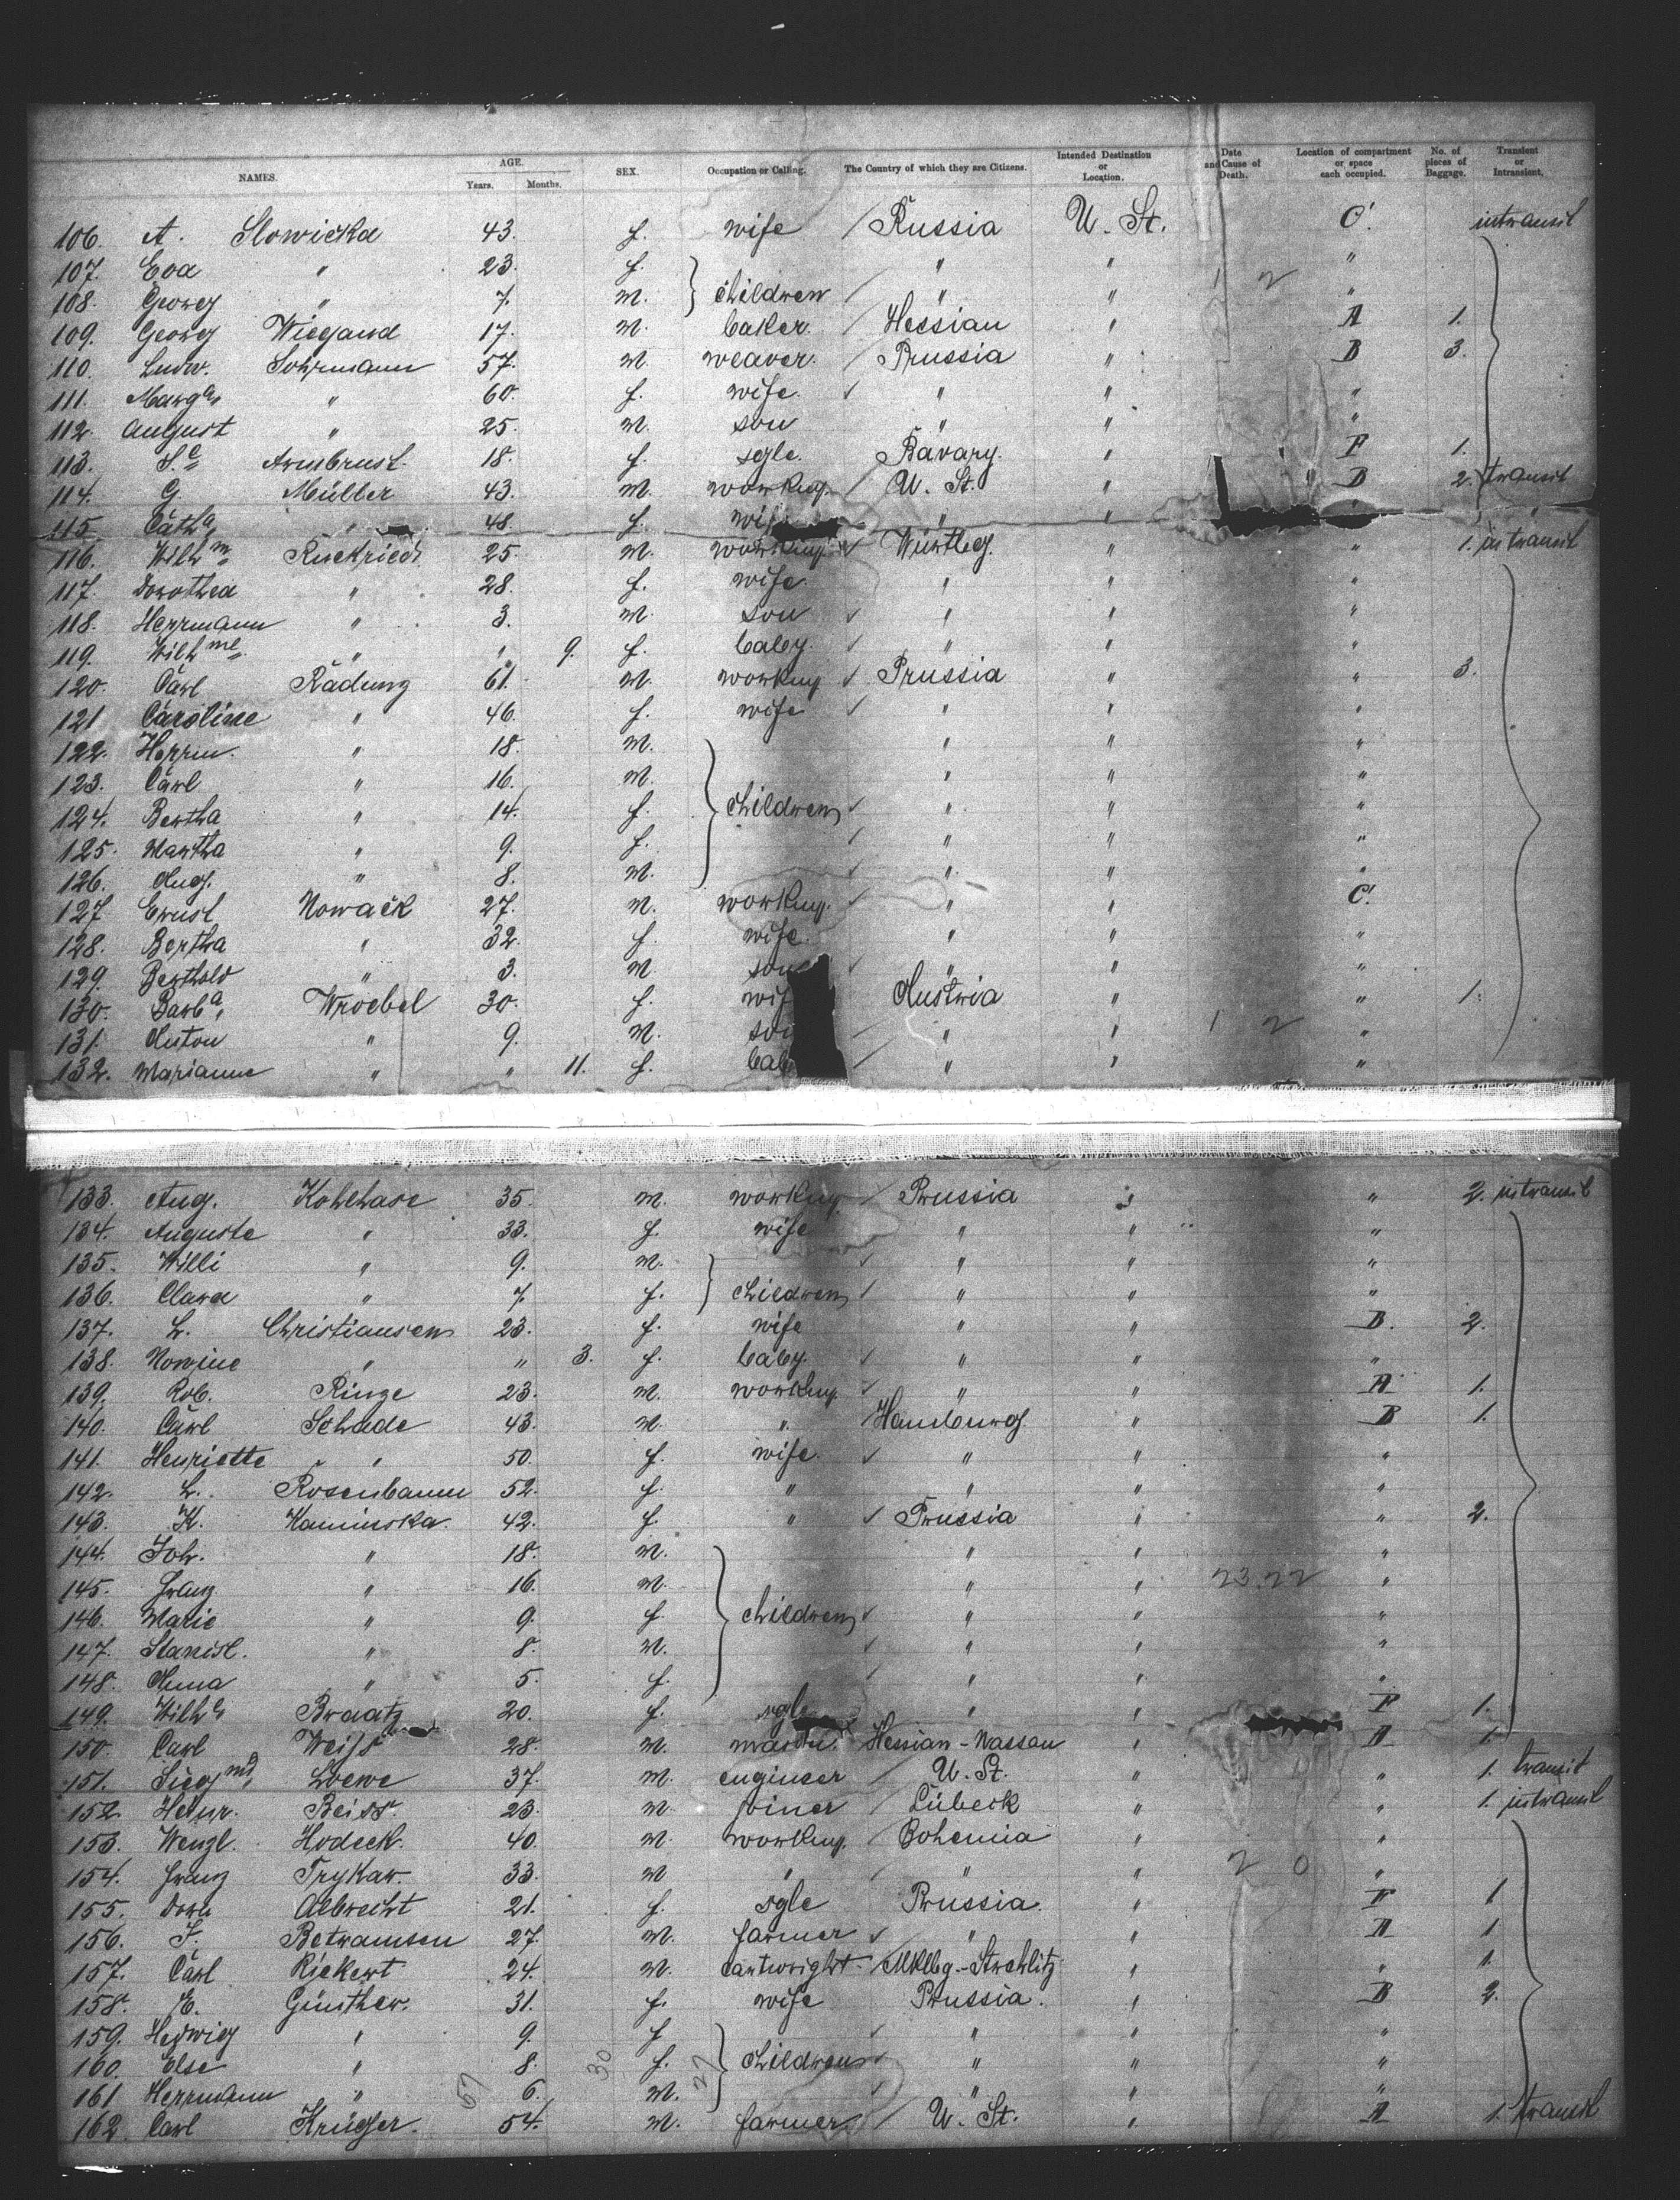 NAMES. AGE. Years. Months. SEX. Occupation or Calling. The Country of which they are Citizens. Intended Destination or Location. Date and Cause of Death. Location of compartment or space each occupied. No. of pieces of Baggage. Transient or Intransient.
106. A. Slowicka 43. f. wife / Russia U. St. C. intransit
107. Eva " 23. f. " " "
108. Georg " 7. m. children / " " "
109. Georg Wiegand 17. m. baker. / Hessian " A 1.
110. Ludw. Sohrmann 57. m. weaver. / Prussia " B 3.
111. Marga " 60. f. wife. ✓ " " "
112. August " 25. m. son " " "
113. S.e Armbrust. 18. f. sgle. Bavary. " F 1.
114. G. Müller 43. m. workng. / U. St. " " B 2. transit
115. Catha " 48. f. " " " "
116. Wilhm Ruckfried 25. m. workng. ✓ Würtbg. " " 1. intransit
117. Dorothea " 28. f. wife. " " "
118. Herrmann " 3. m. son ✓ " " "
119. Wilhme " " 9. f. baby. ✓ " " "
120. Carl Radung 61. m. workng ✓ Prussia " " 3.
121 Caroline " 46. f. wife ✓ " " "
122. Herrm. " 18. m. " " "
123. Carl " 16. m. " " "
124. Bertha " 14. f. children ✓ " " "
125. Martha " 9. f. ✓ " " "
126. Aug. " 8. m. ✓ " "
127 Ernst Nowack 27. m. workng. ✓ " " C.
128. Bertha " 32. f. wife. " " "
129. Berthold " 3. m. son ✓ " " "
130. Barba Wroebel 30. f. Austria " " 1.
131. Anton " 9. m. / " " "
132. Marianne " " 11. f. / " " "
133. Aug. Kohlhase 35. m. workng / Prussia " " 2. intransit
134. Auguste " 33. f. wife " " "
135. Willi " 9. m. ✓ " " "
136. Clara " 7. f. children ✓ " " "
137. L. Christiansen 23. f. wife " " B. 2.
138. Nowine " " 3. f. baby. ✓ " " "
139. Rob. Ringe 23. m. workng. ✓ " " A 1.
140. Carl Schade 43. m. " / Hamburg. " B 1.
141. Henriette " 50. f. wife. ✓ " " "
142. L. Rosenbaum 52. f. " " " "
143. K. Kaminska. 42. f. " ✓ Prussia " " 2.
144. Joh. " 18. m. " " "
145. Franz " 16. m. " " 23.22 "
146. Marie " 9. f. children ✓ " " "
147. Stanisl. " 8. m. ✓ " " "
148. Anna " 5. f. / " " "
149. Wilhe Braatz 20. f. sgle " " F 1.
150. Carl Weiss 28. m. Hessian-Nassau " A 1.
151. Siegmd Loewe 37. m. engineer / U. St. " " 1. transit
152. Heinr. Beiss. 23. m. joiner / Lübeck " " 1. intransit
153. Wenzl. Hodeck. 40. m. workng. / Bohemia " "
154. Franz Trykar. 33. m " / " " 2 0 "
155. Albrecht 21. f. sgle Prussia. " F 1
156. J. Betramsen 27. m. farmer ✓ " " A 1
157. Carl Rickert 24. m. cartwright. / Mklbg.-Strehlitz " " 1.
158. E. Günther. 31. f. wife Prussia. " B 2.
159. Hedwig " 9. f ✓ " " "
160. Else " 8. f. children ✓ " " "
161 Herrmann " 6. m. ✓ " " "
162. Carl Krüger. 54. m. farmer / U. St. " A 1. transit
57 30 27